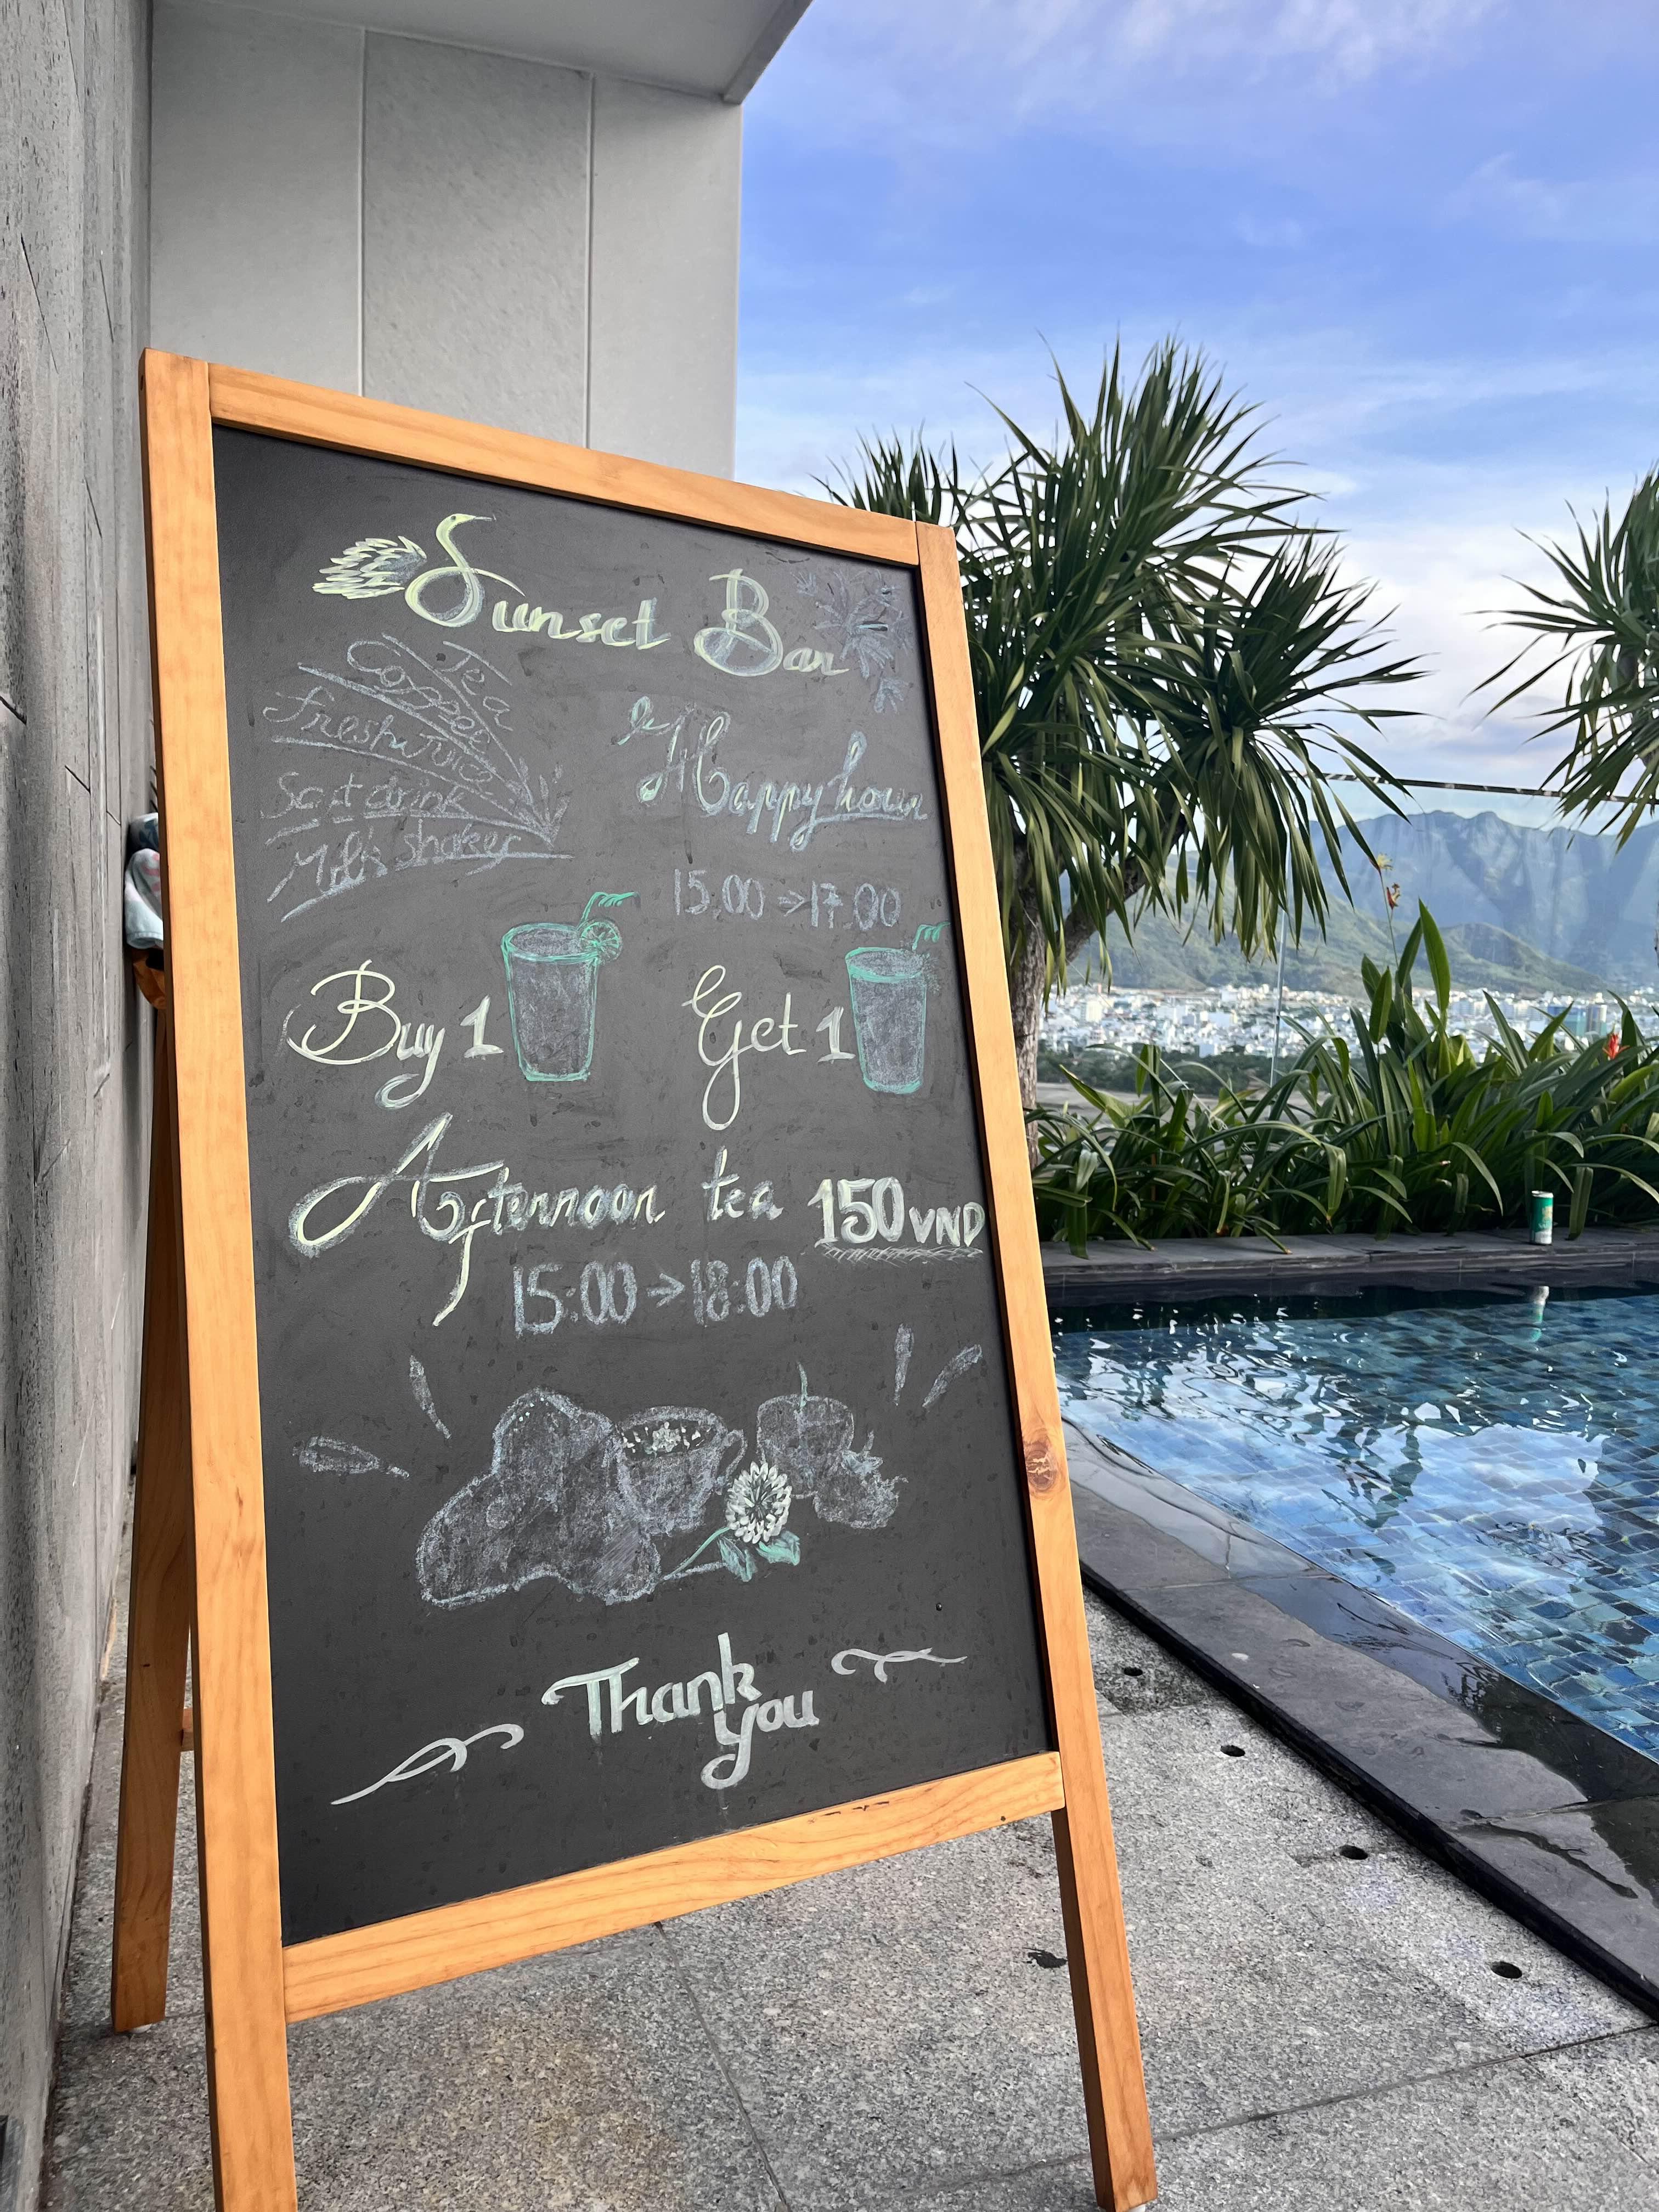 Sunset Bar
Tea
Coffee
Fresh Juice
Soft drink
Milk shaker
Happy hour
15:00→17:00
Buy 1
Get 1
Afternoon tea 150 VND
15:00→18:00
Thank
you